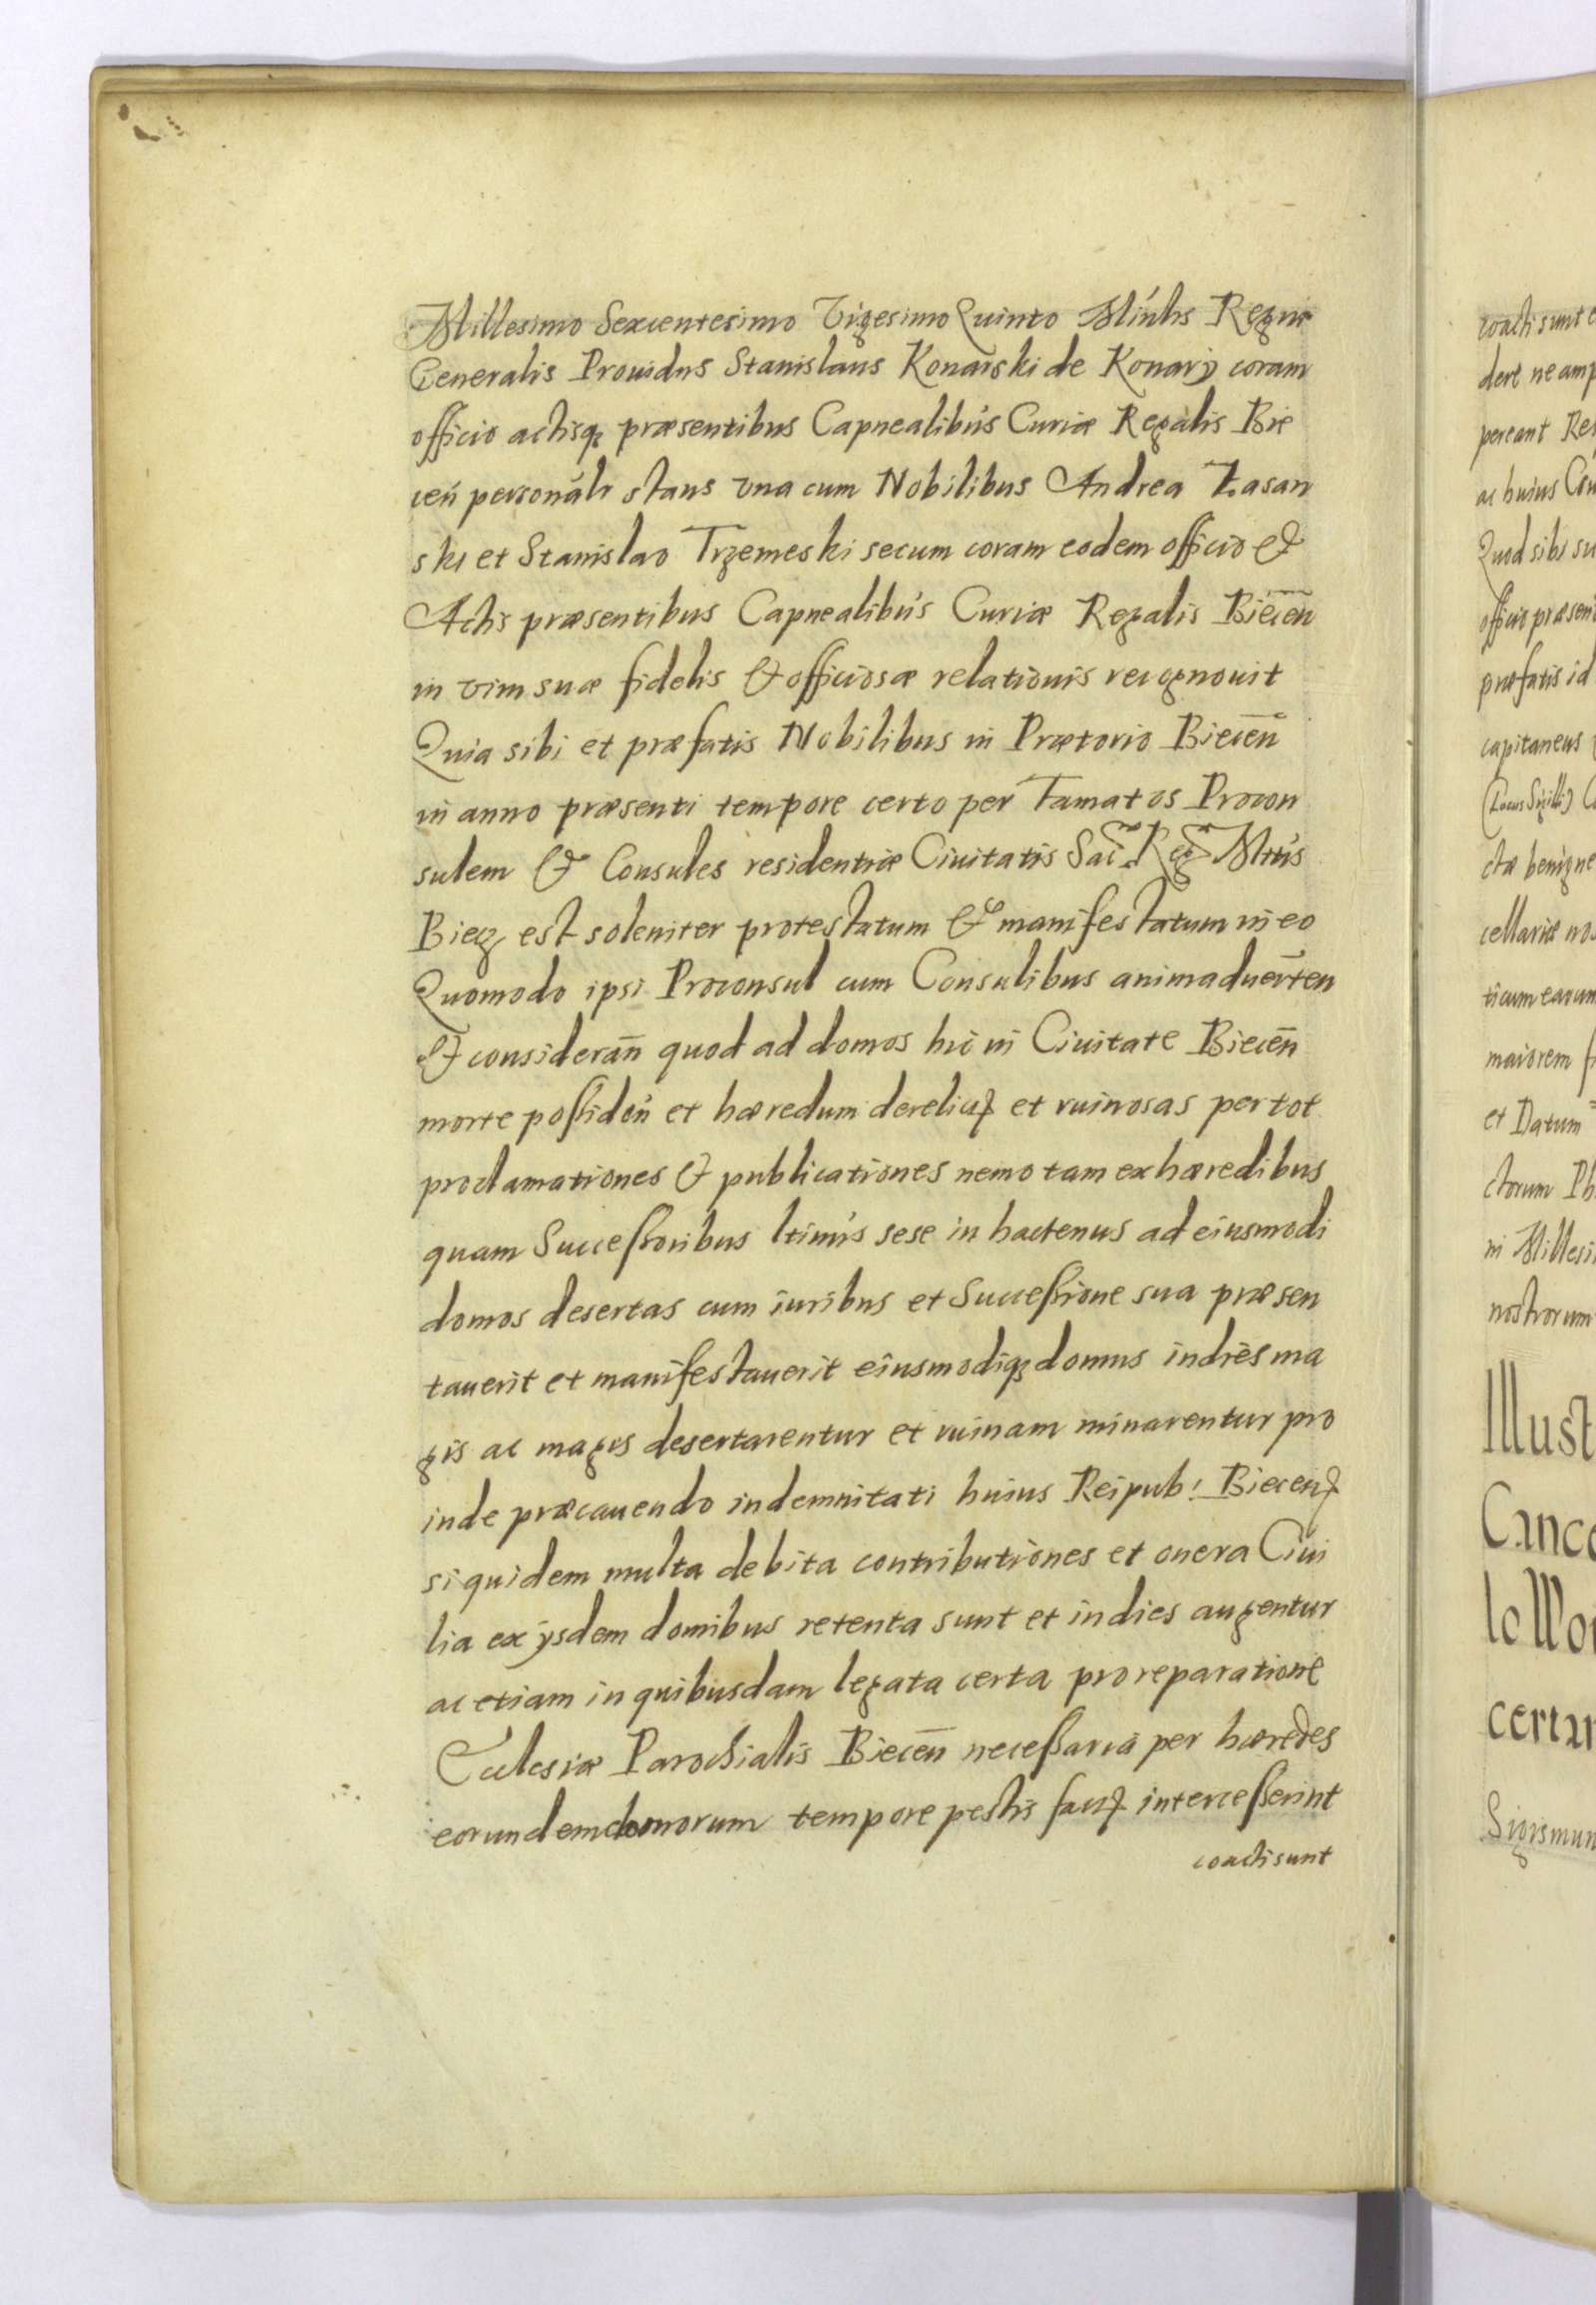 Millesimo Sexcentesimo Vigesimo Quinto Minlis Regni
Generalis Prouidus Stanislaus Konarski de Konary coram
officio actisq præsentibus Capnealibus Curiæ Regalis Bie
cen personali stans vna cum Nobilibus Andrea Łasan
ski et Stanislao Trzemeski secum coram eodem officio &
Actis præsentibus Capnealibus Curiæ Regalis Biecen
in vim suæ fidelis & officiosæ relationis recognouit
Quia sibi et præfatis Nobilibus in Prætorio Biecen
in anno præsenti tempore certo per Famatos Procon
sulem & Consules residentiæ Ciuitatis Sac Reg Mtis
Biecz est soleniter protestatum & manifestatum in eo
Quomodo ipsi Proconsul cum Consulibus animaduerten
& consideran quod ad domos hic in Ciuitate Biecen
morte possiden et hæredum derelict et ruinosas per tot
proclamationes & publicationes nemo tam ex hæredibus
quam Successoribus ltimis sese in hactenus ad eiusmodi
domos desertas cum iuribus et Successione sua præsen
tauerit et manifestauerit eiusmodiq domus indies ma
gis ac magis desertarentur et ruinam minarentur pro
inde præcauendo indemnitati huius Reipub: Biecen
siquidem multa debita contributiones et onera Ciui
lia ex ysdem domibus retenta sunt et indies augentur
ac etiam in quibusdam legata certa pro reparatione
Ecclesiæ Parochialis Biecen necessaria per hæredes
eorundem domorum tempore pestis fact intercesserint
coacti sunt
coacti sunt
dere ne amp
pereant Re
ac huius
Quod sibi su
officio præsen
præfatis id
capitaneus
(Locus Sigilli)
ctæ benigne
cellariæ nos
ticum earum
maiorem
et Datum
ctorum Ph
ni Millesi
nostrorum
Illust
Canc
certar
Sigismun